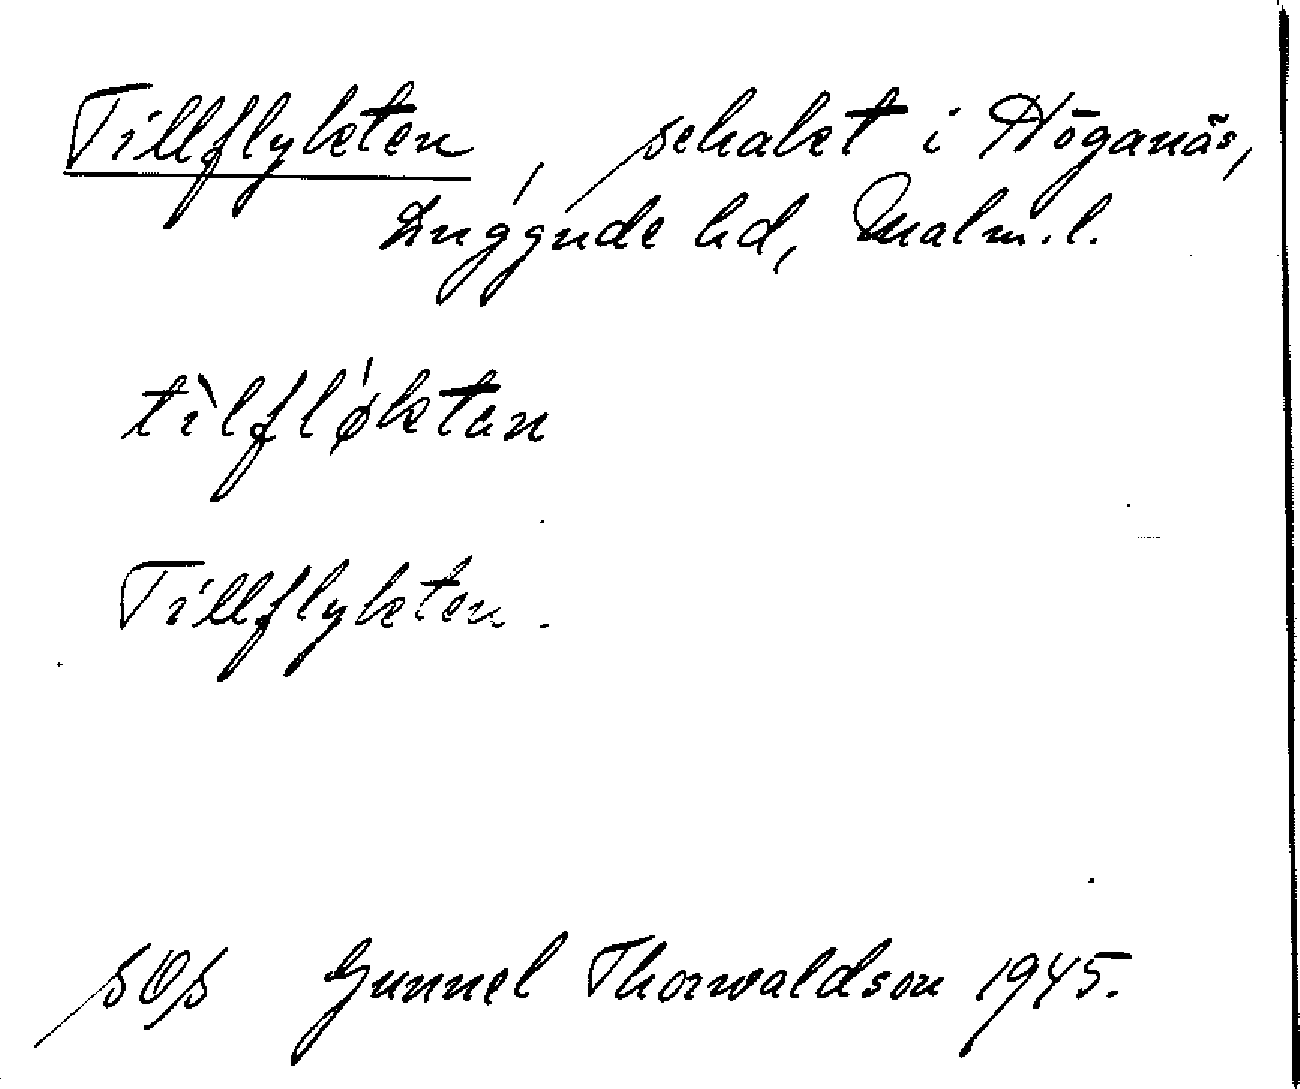 Tillflykten, schakt i Höganäs,
Luggude hd, Malm.l.
tìlfløktan
Tillflykten.
sOs Gunnel Thorwaldson 1945.